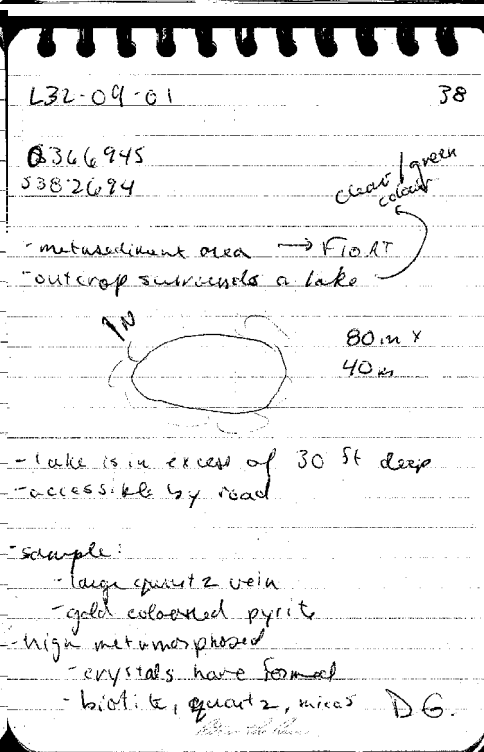 L32-09-01 38
0366945
5382694
clear/green
colour
- metasediment area → FLOAT
- outcrop surrounds a lake
N
80 m x
40 m
- lake is in excess of 30 ft deep
- accessible by road
- sample:
- large quartz vein
- gold coloured pyrite
- high metamorphosed
- crystals have formed
- biotite, quartz, micas D.G.